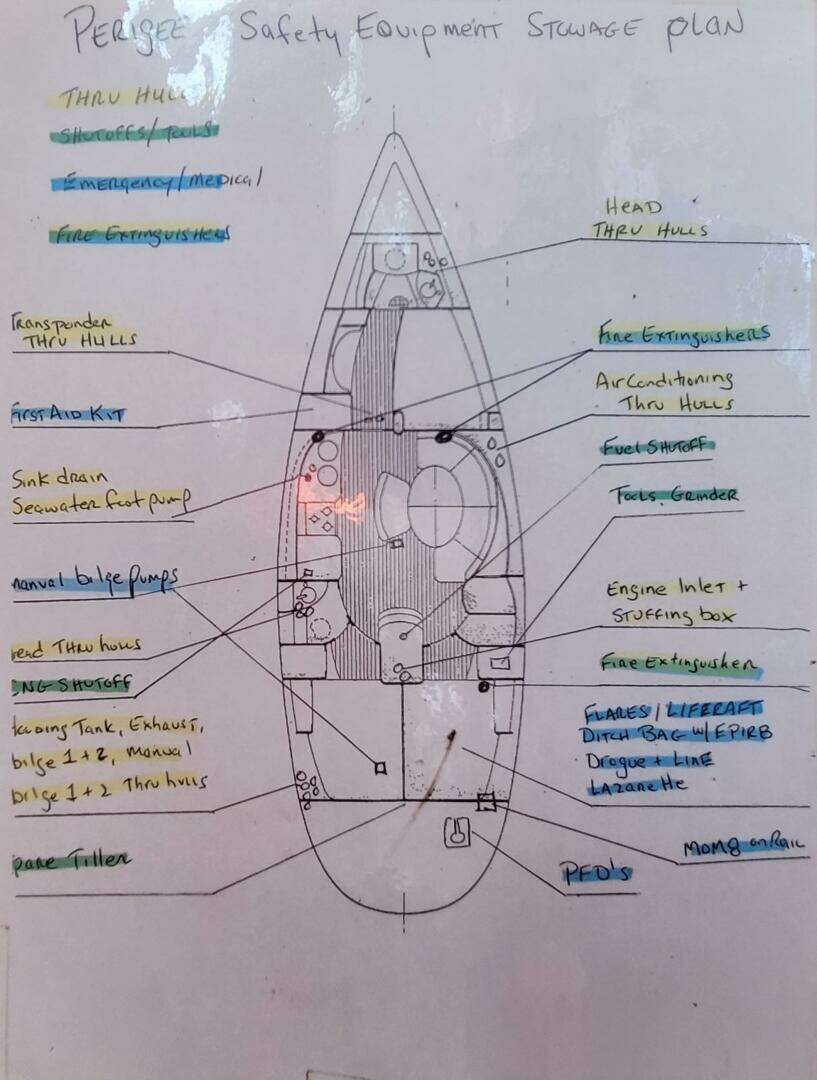 PERIGEE Safety Equipment Stowage plan
THRU HULL
SHUTOFFS/TOOLS
Emergency/medical
Fire Extinguishers
HEAD
THRU HULLS
Transponder
THRU HULLS
Fire Extinguishers
Air Conditioning
Thru Hulls
First Aid Kit
Fuel Shutoff
Sink drain
Seawater foot pump
Tools, Grinder
manual bilge pumps
Engine Inlet +
Stuffing box
ead THRU hulls
Fire Extinguisher
NG SHUTOFF
FLARES/LIFERAFT
DITCH BAG W/EPIRB
Drogue + LINE
Lazarette
Tank, Exhaust,
bilge 1+2, manual
bilge 1+2 Thru hulls
pare Tiller
MOM8 on Rail
PFD's